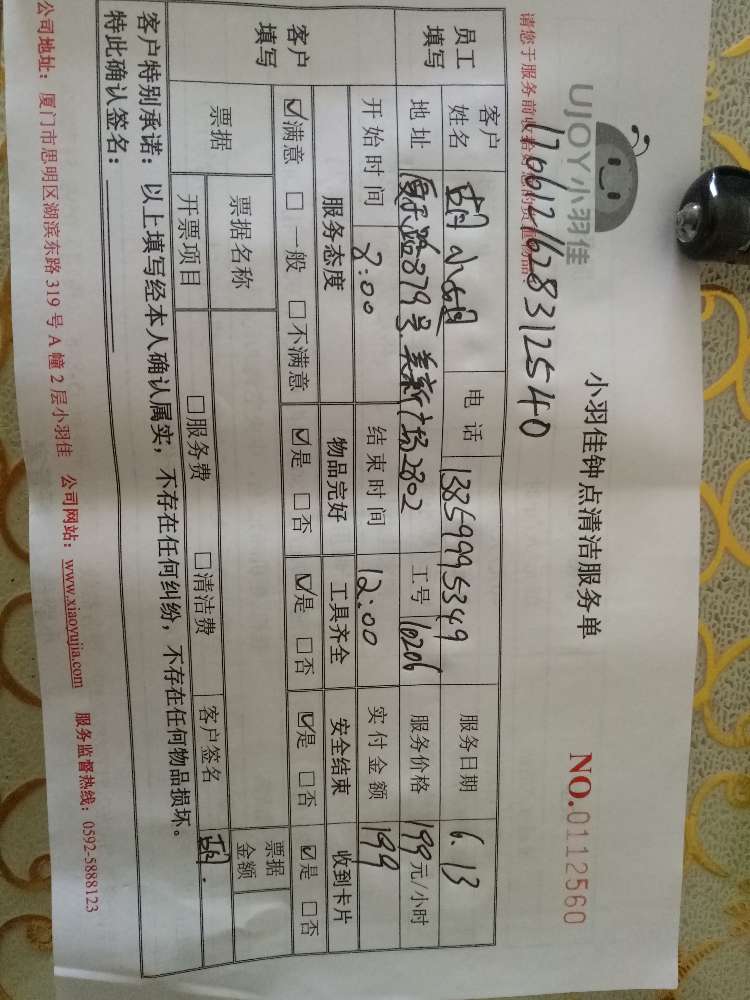 UJOY小羽佳
小羽佳钟点清洁服务单
NO.0112560
请您于服务前收拾好您的贵重物品!
1706121628312540
员工填写
客户姓名 胡小姐 电话 13859995349 服务日期 6.13
地址 厦禾路879号美新广场2802 工号 10206 服务价格 199元/小时
开始时间 8:00 结束时间 12:00 实付金额 199
客户填写
服务态度 物品完好 工具齐全 安全结束 收到卡片
☑满意 □一般 □不满意 ☑是 □否 ☑是 □否 ☑是 □否 ☑是 □否
票据 票据名称 票据金额
开票项目 □服务费 □清洁费 客户签名 胡.
客户特别承诺：以上填写经本人确认属实，不存在任何纠纷，不存在任何物品损坏。
特此确认签名：
公司地址：厦门市思明区湖滨东路319号A幢2层小羽佳 公司网站：www.xiaoyujia.com 服务监督热线：0592-5888123